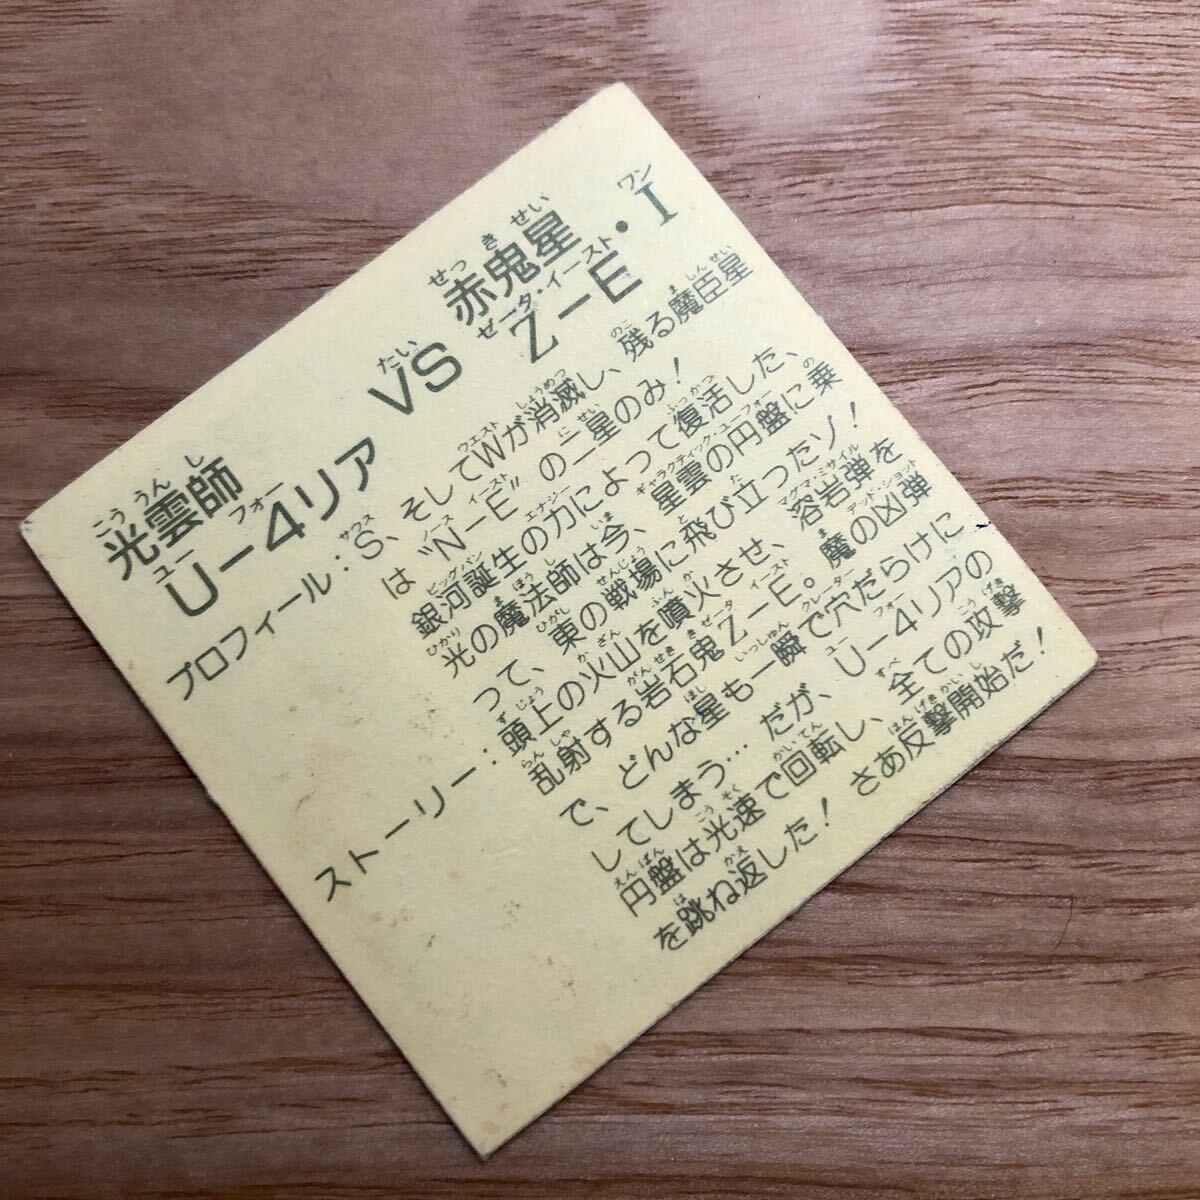 光雲師 VS 赤鬼星
こううんし たい せっきせい
U-4リア Z-E・I
ユー フォー ゼータ・イースト ワン
プロフィール：S、そしてWが消滅し、残る魔臣星
サウス ウエスト しょうめつ のこ ましんせい
は“N-E”の二星のみ！
ノース イースト にせい
銀河誕生の力によって復活した、
ビッグバン エナジー ふっかつ
光の魔法師は今、星雲の円盤に乗
ひかり まほうし いま ギャラクティック・ユーフォー の
って、東の戦場に飛び立ったゾ！
ひがし せんじょう と た
ストーリー：頭上の火山を噴火させ、溶岩弾を
ずじょう かざん ふんか マグマ・ミサイル
乱射する岩石鬼Z-E。魔の凶弾
らんしゃ がんせきき ゼータ イースト ま デッド・ショット
で、どんな星も一瞬で穴だらけに
ほし いっしゅん クレーター
してしまう…だが、U-4リアの
ユー フォー
円盤は光速で回転し、全ての攻撃
えんばん こうそく かいてん すべ こうげき
を跳ね返した！さあ反撃開始だ！
は かえ はんげきかいし